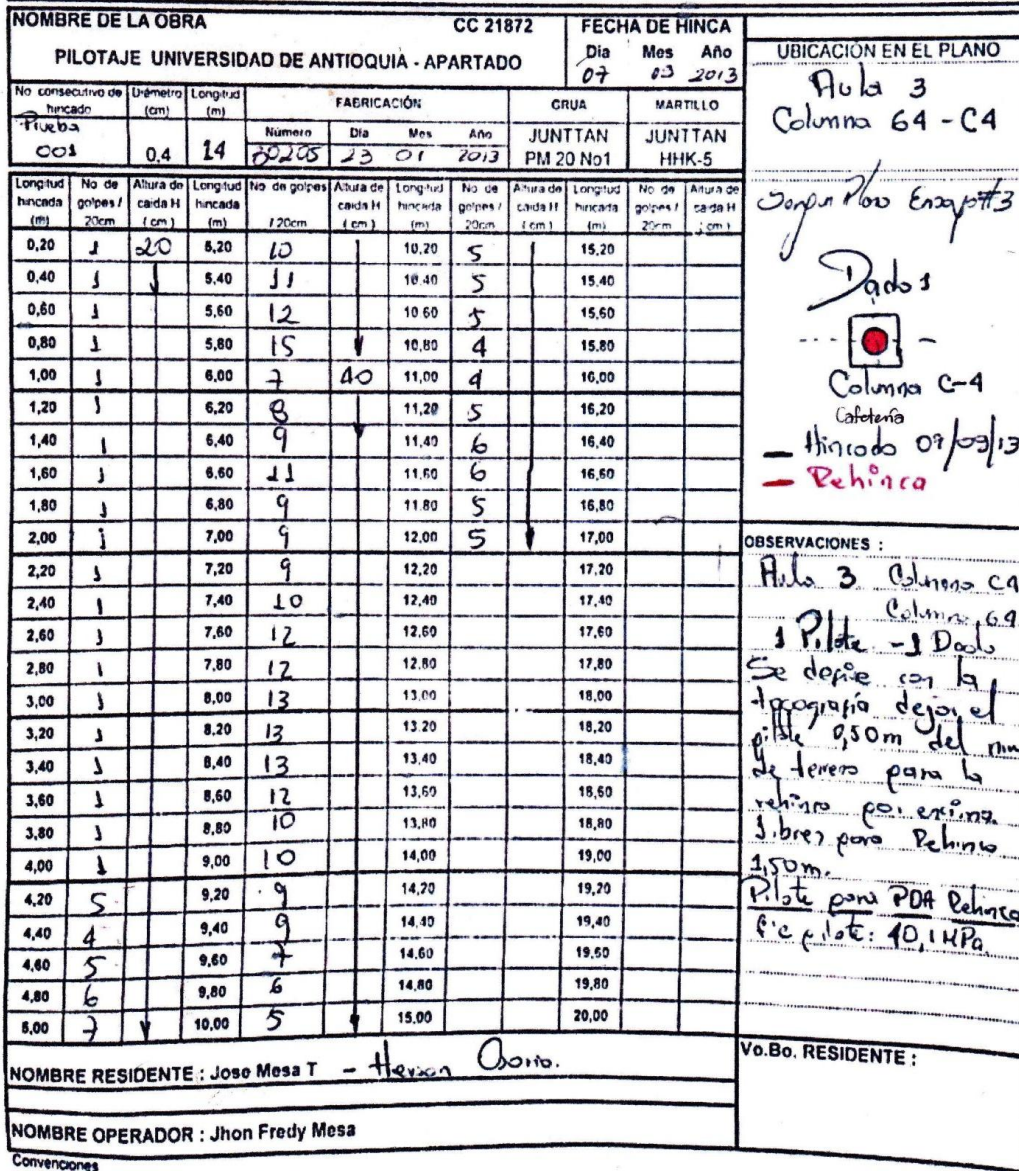 NOMBRE DE LA OBRA CC 21872
PILOTAJE UNIVERSIDAD DE ANTIOQUIA - APARTADO
FECHA DE HINCA
Dia Mes Año
07 03 2013
No consecutivo de hincado Diámetro (cm) Longitud (m) FABRICACIÓN GRUA MARTILLO
Número Dia Mes Año
Prueba 001 0.4 14 30205 23 01 2013 JUNTTAN PM 20 No1 JUNTTAN HHK-5
Longitud hincada (m) No de golpes / 20cm Altura de caida H (cm) Longitud hincada (m) No de golpes / 20cm Altura de caida H (cm) Longitud hincada (m) No de golpes / 20cm Altura de caida H (cm) Longitud hincada (m) No de golpes / 20cm Altura de caida H (cm)
0,20 1 20 5,20 10 10,20 5 15,20
0,40 1 5,40 11 10,40 5 15,40
0,60 1 5,60 12 10,60 5 15,60
0,80 1 5,80 15 10,80 4 15,80
1,00 1 6,00 7 40 11,00 4 16,00
1,20 1 6,20 8 11,20 5 16,20
1,40 1 6,40 9 11,40 6 16,40
1,60 1 6,60 11 11,60 6 16,60
1,80 1 6,80 9 11,80 5 16,80
2,00 1 7,00 9 12,00 5 17,00
2,20 1 7,20 9 12,20 17,20
2,40 1 7,40 10 12,40 17,40
2,60 1 7,60 12 12,60 17,60
2,80 1 7,80 12 12,80 17,80
3,00 1 8,00 13 13,00 18,00
3,20 1 8,20 13 13,20 18,20
3,40 1 8,40 13 13,40 18,40
3,60 1 8,60 12 13,60 18,60
3,80 1 8,80 10 13,80 18,80
4,00 1 9,00 10 14,00 19,00
4,20 5 9,20 9 14,20 19,20
4,40 4 9,40 9 14,40 19,40
4,60 5 9,60 7 14,60 19,60
4,80 6 9,80 6 14,80 19,80
5,00 7 10,00 5 15,00 20,00
NOMBRE RESIDENTE : Jose Mesa T - Osorio.
NOMBRE OPERADOR : Jhon Fredy Mesa
Convenciones
UBICACIÓN EN EL PLANO
Aula 3
Columna 64 - C4
Plano #3
Dado 1
Columna C-4
Cafetería
Hincado 07/03/13
Rehinca
OBSERVACIONES :
Aula 3 Columna C4
Columna 64
1 Pilote - 1 Dado
Se define con la
topografía dejar el
pilote 0,50m del
de terreno para la
rehinca por encima.
Libres para Rehinca
1,50m.
Pilote para PDA Rehinca
f'c pilote: 40,1 MPa.
Vo.Bo. RESIDENTE :